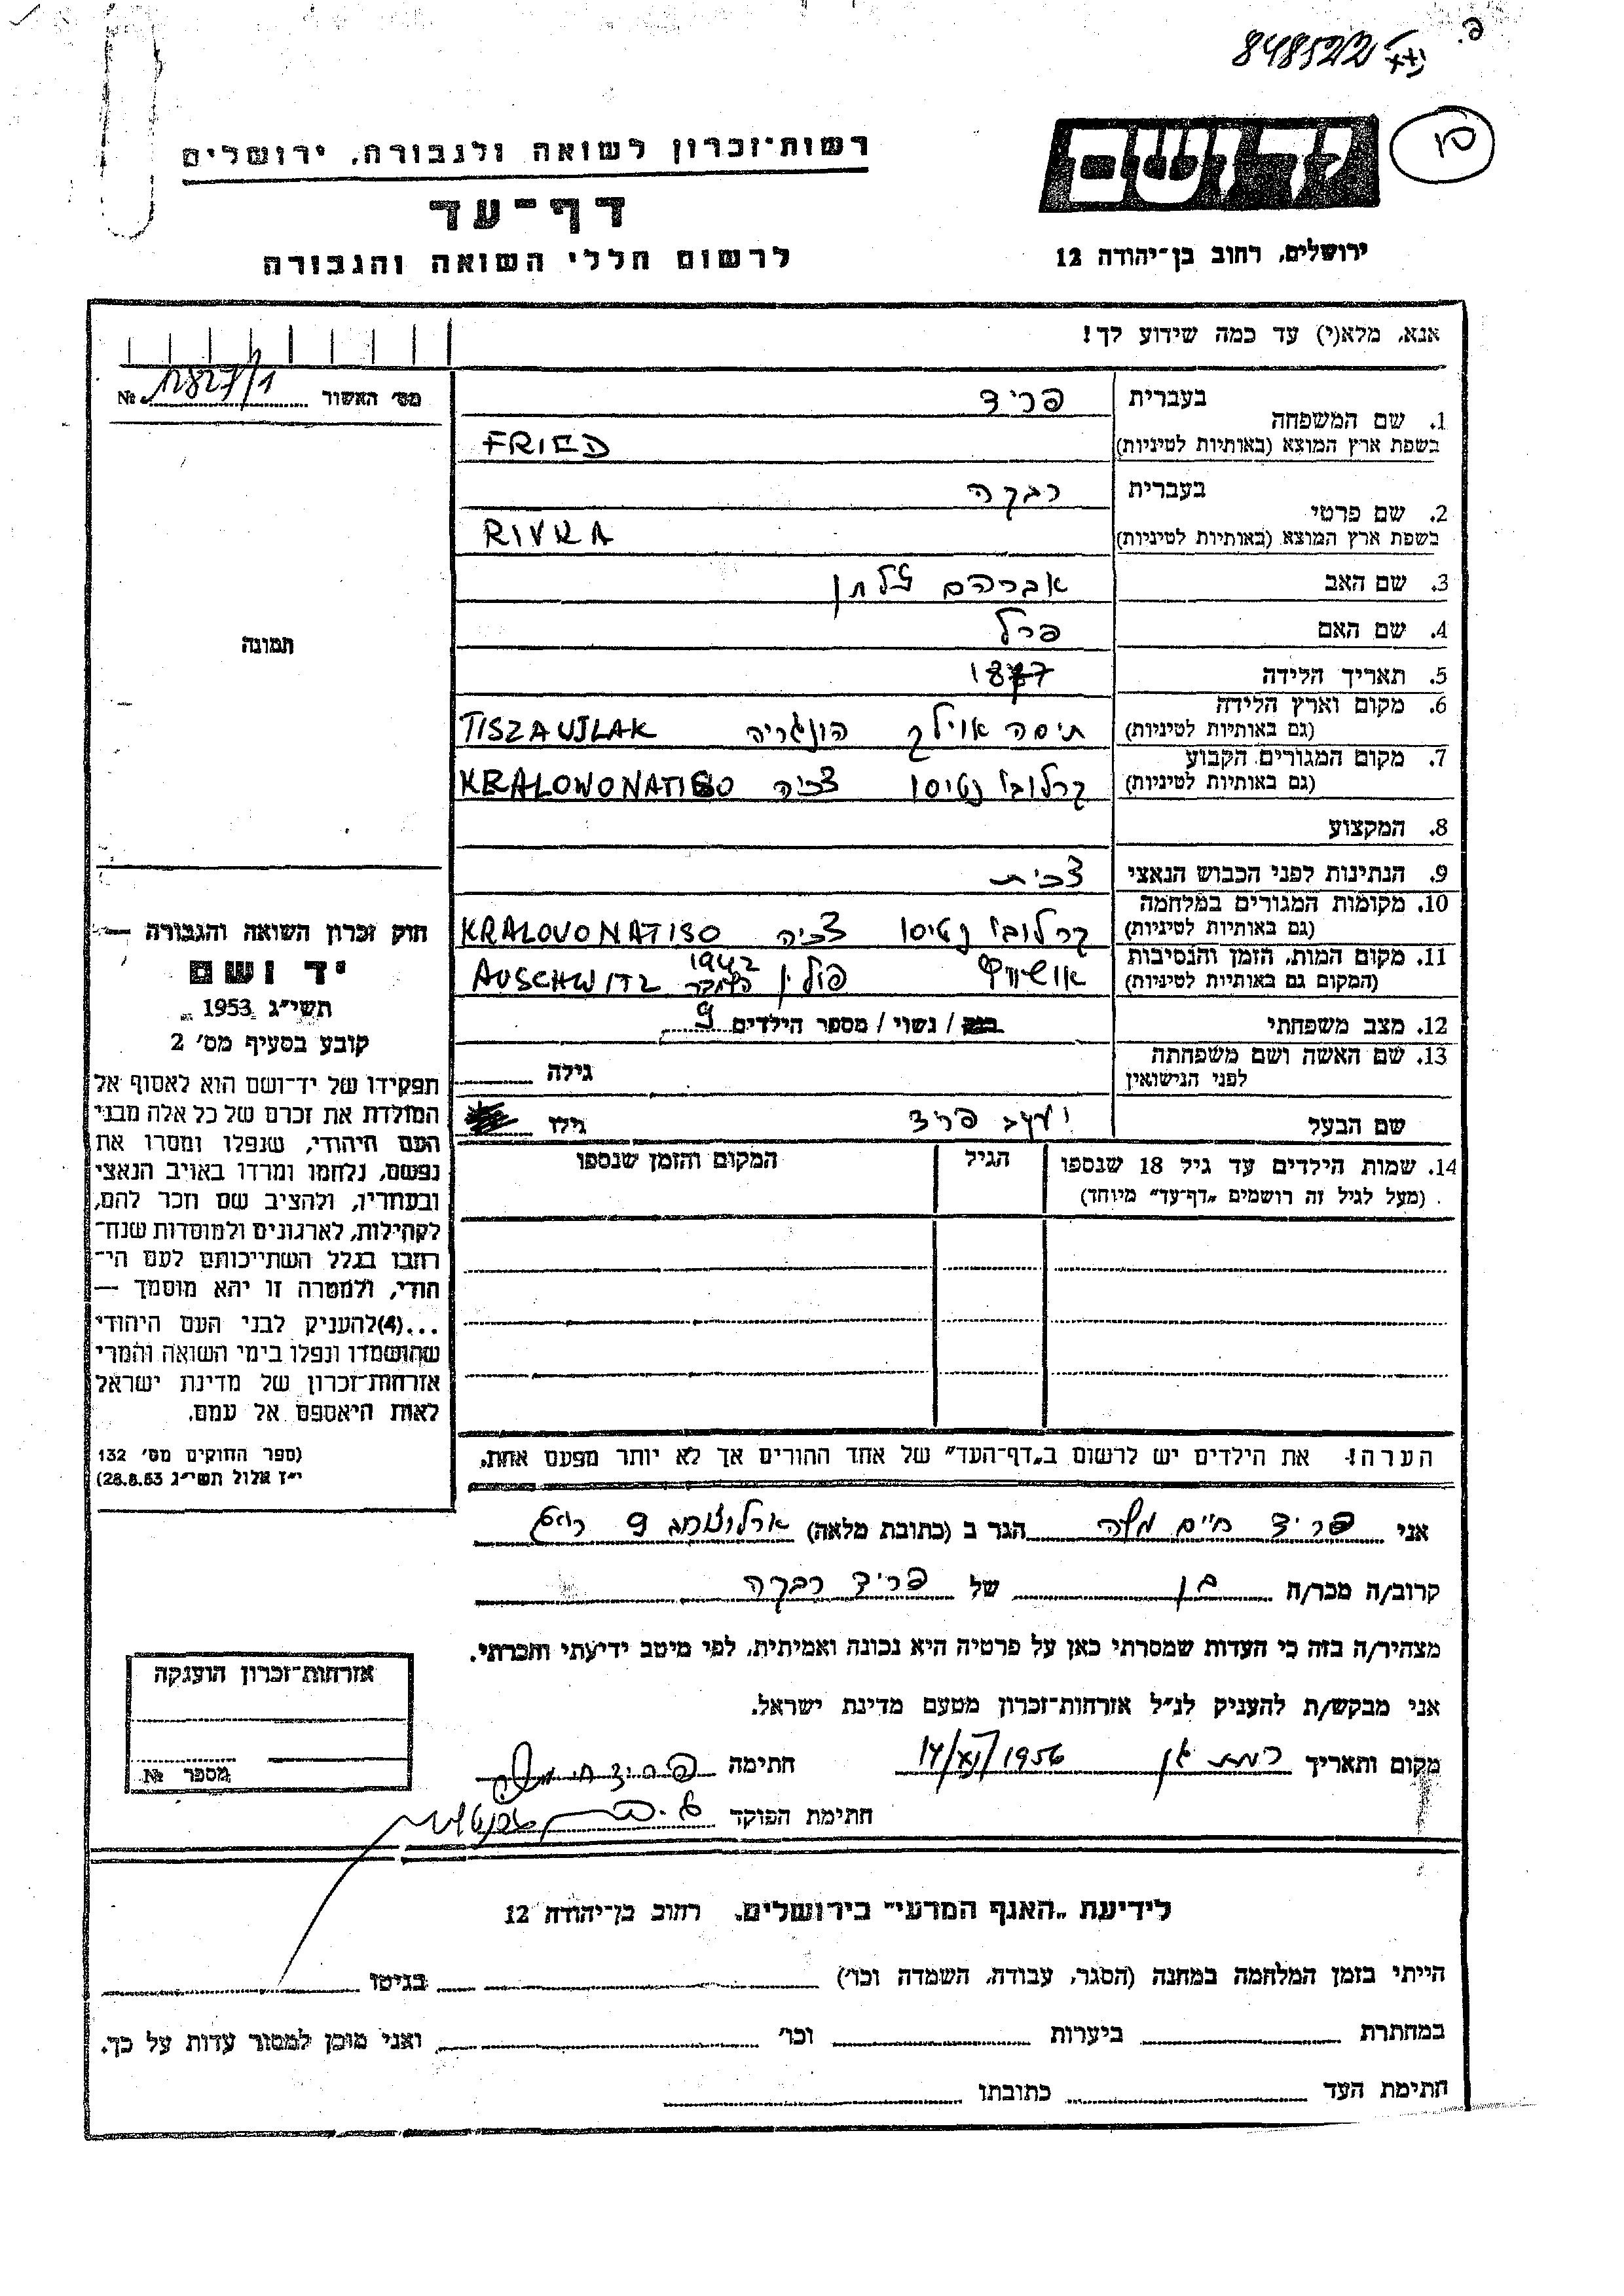 848522
רשות־זכרון לשואה ולגבורה, ירושלים
דף־עד
לרשום חללי השואה והגבורה
יד ושם
ירושלים, רחוב בן־יהודה 12
אנא, מלא(י) עד כמה שידוע לך!
מס׳ האשור № 12827/1
בעברית פריד
1. שם המשפחה
בשפת ארץ המוצא (באותיות לטיניות) FRIED
בעברית רבקה
2. שם פרטי
בשפת ארץ המוצא (באותיות לטיניות) RIVKA
3. שם האב אברהם
4. שם האם פרל
5. תאריך הלידה 1877
6. מקום וארץ הלידה
(גם באותיות לטיניות) תיסה אוילק הונגריה TISZAUJLAK
7. מקום המגורים הקבוע
(גם באותיות לטיניות) קרלובו נטיסו צכיה KRALOWONATISO
8. המקצוע
9. הנתינות לפני הכבוש הנאצי צכית
10. מקומות המגורים במלחמה
(גם באותיות לטיניות) קרלובו נטיסו צכיה KRALOVONATISO
11. מקום המות, הזמן והנסיבות
(המקום גם באותיות לטיניות) אושויץ פולין 1942 AUSCHWITZ
12. מצב משפחתי רווק / נשוי / מספר הילדים 9
13. שם האשה ושם משפחתה
לפני הנישואין גילה
שם הבעל יעקב פריד גילו
14. שמות הילדים עד גיל 18 שנספו הגיל המקום והזמן שנספו
(מעל לגיל זה רושמים „דף־עד״ מיוחד)
הערה: את הילדים יש לרשום ב„דף־העד״ של אחד ההורים אך לא יותר מפעם אחת.
תמונה
חוק זכרון השואה והגבורה —
יד ושם
תשי״ג 1953
קובע בסעיף מס׳ 2
תפקידו של יד־ושם הוא לאסוף אל
המולדת את זכרם של כל אלה מבני
העם היהודי, שנפלו ומסרו את
נפשם, נלחמו ומרדו באויב הנאצי
ובעוזריו, ולהציב שם וזכר להם,
לקהילות, לארגונים ולמוסדות שנח־
רבו בגלל השתייכותם לעם הי־
הודי, ולמטרה זו יהא מוסמך —
...(4)להעניק לבני העם היהודי
שהושמדו ונפלו בימי השואה והמרי
אזרחות־זכרון של מדינת ישראל
לאות היאספם אל עמם.
(ספר החוקים מס׳ 132
י״ז אלול תשי״ג 28.8.53)
אני פריד חיים משה הגר ב (כתובת מלאה) ארלוזורוב 9
קרוב/ה מכר/ה בן של פריד רבקה
מצהיר/ה בזה כי העדות שמסרתי כאן על פרטיה היא נכונה ואמיתית, לפי מיטב ידיעתי והכרתי.
אני מבקש/ת להעניק לנ״ל אזרחות־זכרון מטעם מדינת ישראל.
מקום ותאריך רמת גן 14/XI/1956 חתימה
חתימת הפוקד
אזרחות־זכרון הוענקה
מספר №
לידיעת „האגף המדעי״ בירושלים, רחוב בן־יהודה 12
הייתי בזמן המלחמה במחנה (הסגר, עבודה, השמדה וכו׳) בגיטו
במחתרת ביערות וכו׳ ואני מוכן למסור עדות על כך.
חתימת העד כתובתו